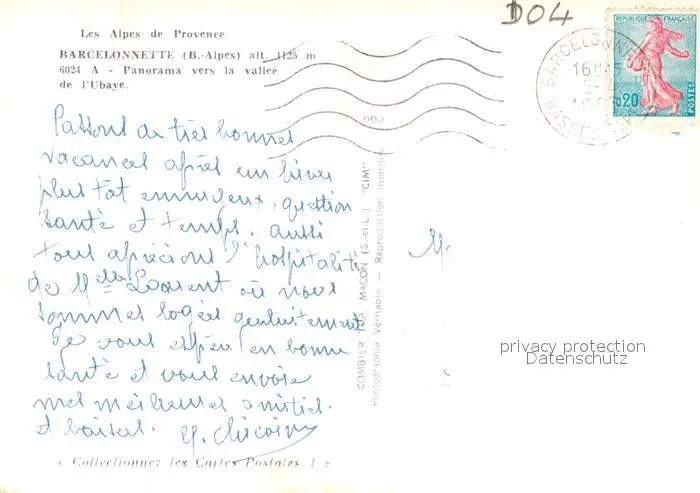 D04
Les Alpes de Provence
BARCELONNETTE (B.-Alpes) alt. 1125 m
6024 A - Panorama vers la vallée
de l'Ubaye.
REPUBLIQUE FRANÇAISE
0,20
POSTES
BARCELONNE
16H
BASSES
Passons de très bonnes
vacances après un hiver
plus tôt ennuyeux, question
santé et temps. Aussi
tous apprécions l'hospitalité
de Melle Laurent où nous
sommes logées gentiment
Je vous espère en bonne
santé et vous envoie
mes meilleures amitiés
et baisers.
COMBIER IMP. MACON (S.-et-L.) "CIM"
Photographie Véritable - Reproduction interdite
M.
privacy protection
Datenschutz
« Collectionnez les Cartes Postales ! »